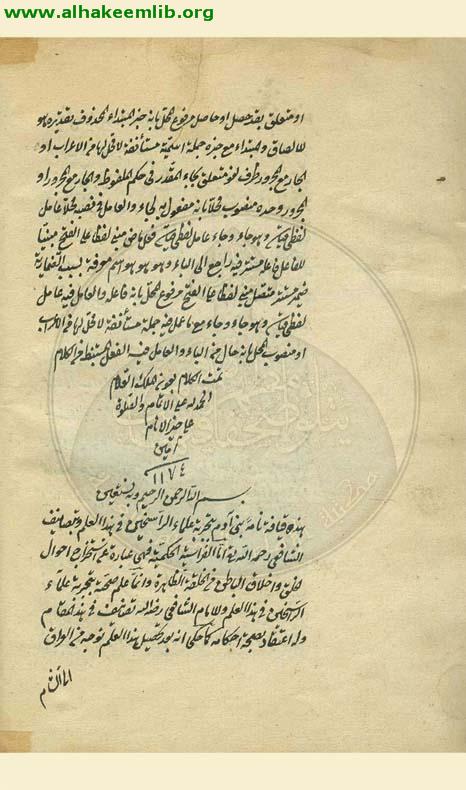 www.alhakeemlib.org
او متعلق بقد حصل او حاصل مرفوع المحل بانه خبر المبتداء المحذوف تقديره هو
للالصاق والمبتداء مع خبره جملة اسمية مستأنفة لا محل لها من الاعراب او
الجار مع المجرور ظرف لغو متعلق بجاء المقدر فى حكم الملفوظ والجار مع المجرور او
المجرور وحده منصوب محلا بانه مفعول به لجاء والعامل فى نصبه محلا عامل
لفظى قياسى وهو جاء وجاء عامل لفظى قياسى فعل ماض مبنى لفظا على الفتح مبنيا
للفاعل فاعله مستتر فيه راجع الى الباء وهو هو اسم معرفة بسبب الضميرية
ضمير مستتر متصل مبنى لفظا على الفتح مرفوع المحل بانه فاعله والعامل فيه عامل
لفظى قياسى وهو جاء وجاء مع ما عمل فيه جملة مستأنفة لا محل لها من الاعراب
او منصوب المحل بانه حال من الباء والعامل فيه الفعل المستنبط من الكلام
تمت الكلام بعون الملك العلام
الحمد لله على الاتمام والصلوة
على خير الانام
آمين
١١٧٤
بسم الله الرحمن الرحيم وبه نستعين
هذه قيافة نامه بنى آدم بتجربة علماء الراسخين فى هذا العلم وتصانيف
الشافعى رحمه الله اما الفراسة الحكمية فهى عبارة عن استخراج احوال
الخلق واخلاق الباطن من الخلقة الظاهرة وانما علم صحته بتجربة علماء
الراسخين فى هذا العلم وللامام الشافعى رضى الله تصانيف فى هذا المقام
وله اعتقاد بصحة احكامه كما حكى انه بعد تحصيل هذا العلم توجه من العراق